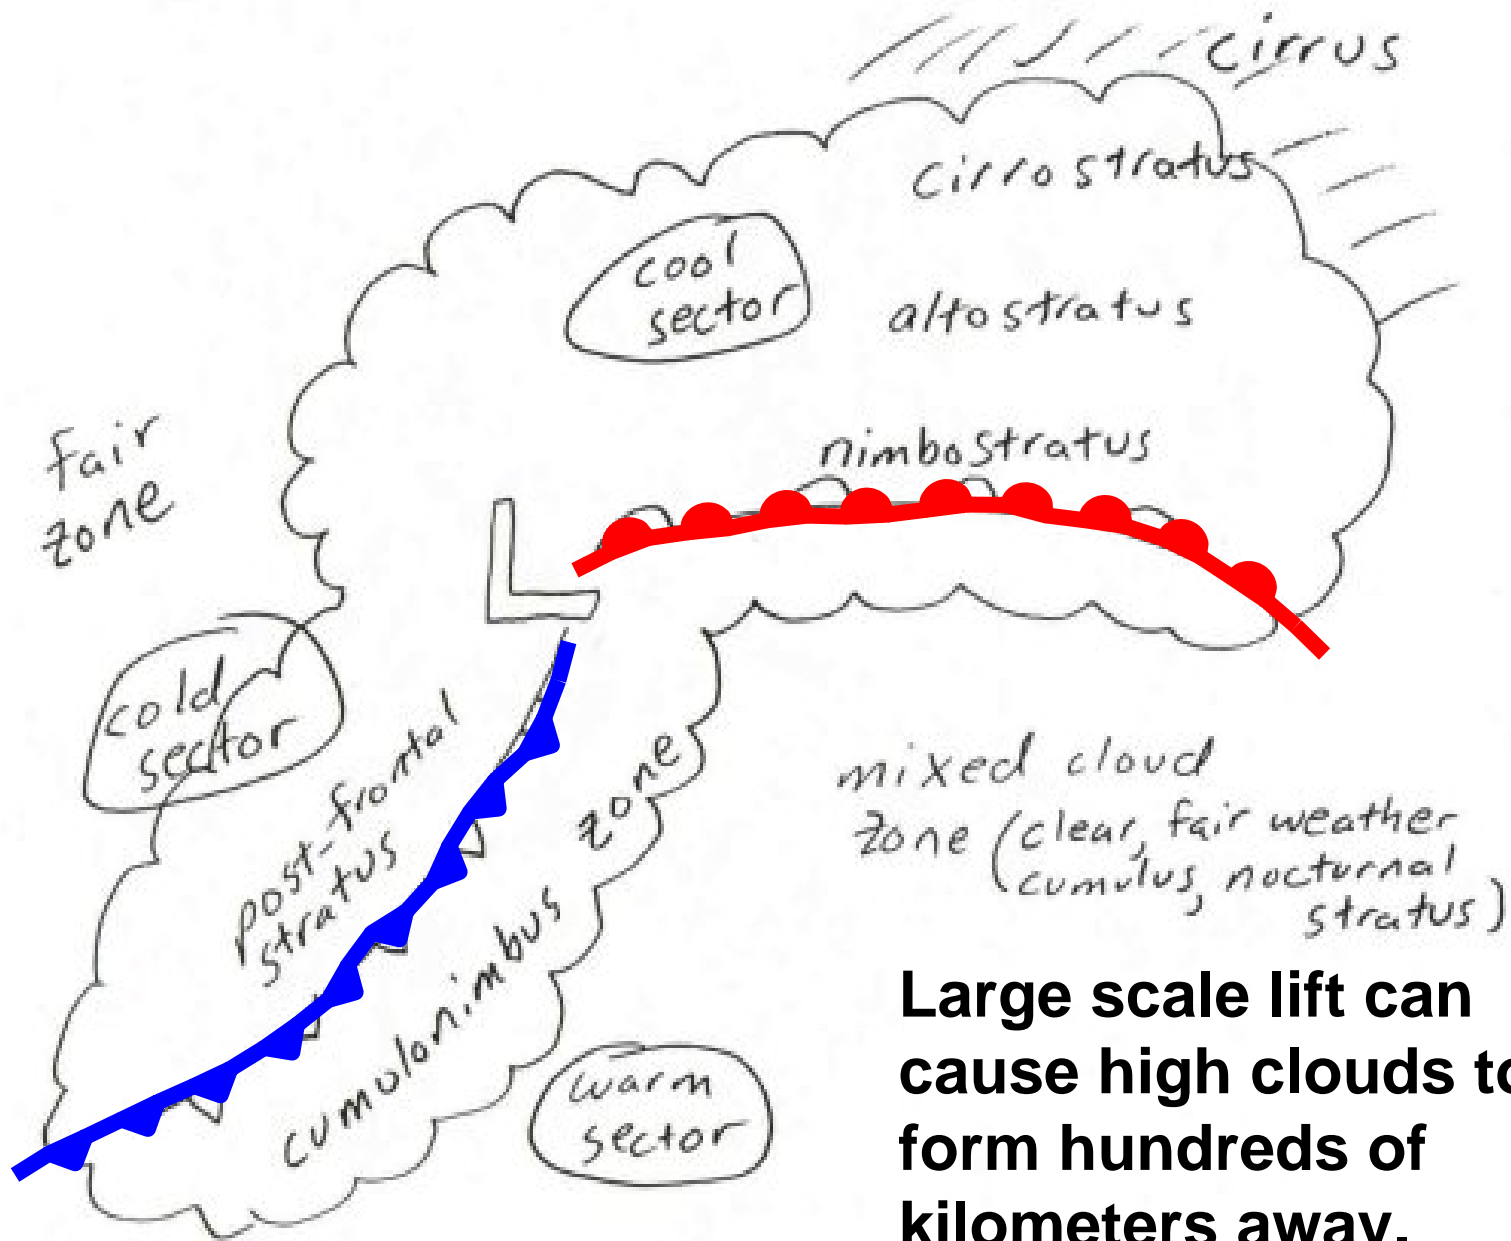 cirrus
cirrostratus
cool
sector
altostratus
nimbostratus
fair
zone
L
cold
sector
post-frontal
stratus
cumulonimbus zone
mixed cloud
zone (clear, fair weather
cumulus, nocturnal
stratus)
warm
sector
Large scale lift can
cause high clouds to
form hundreds of
kilometers away.